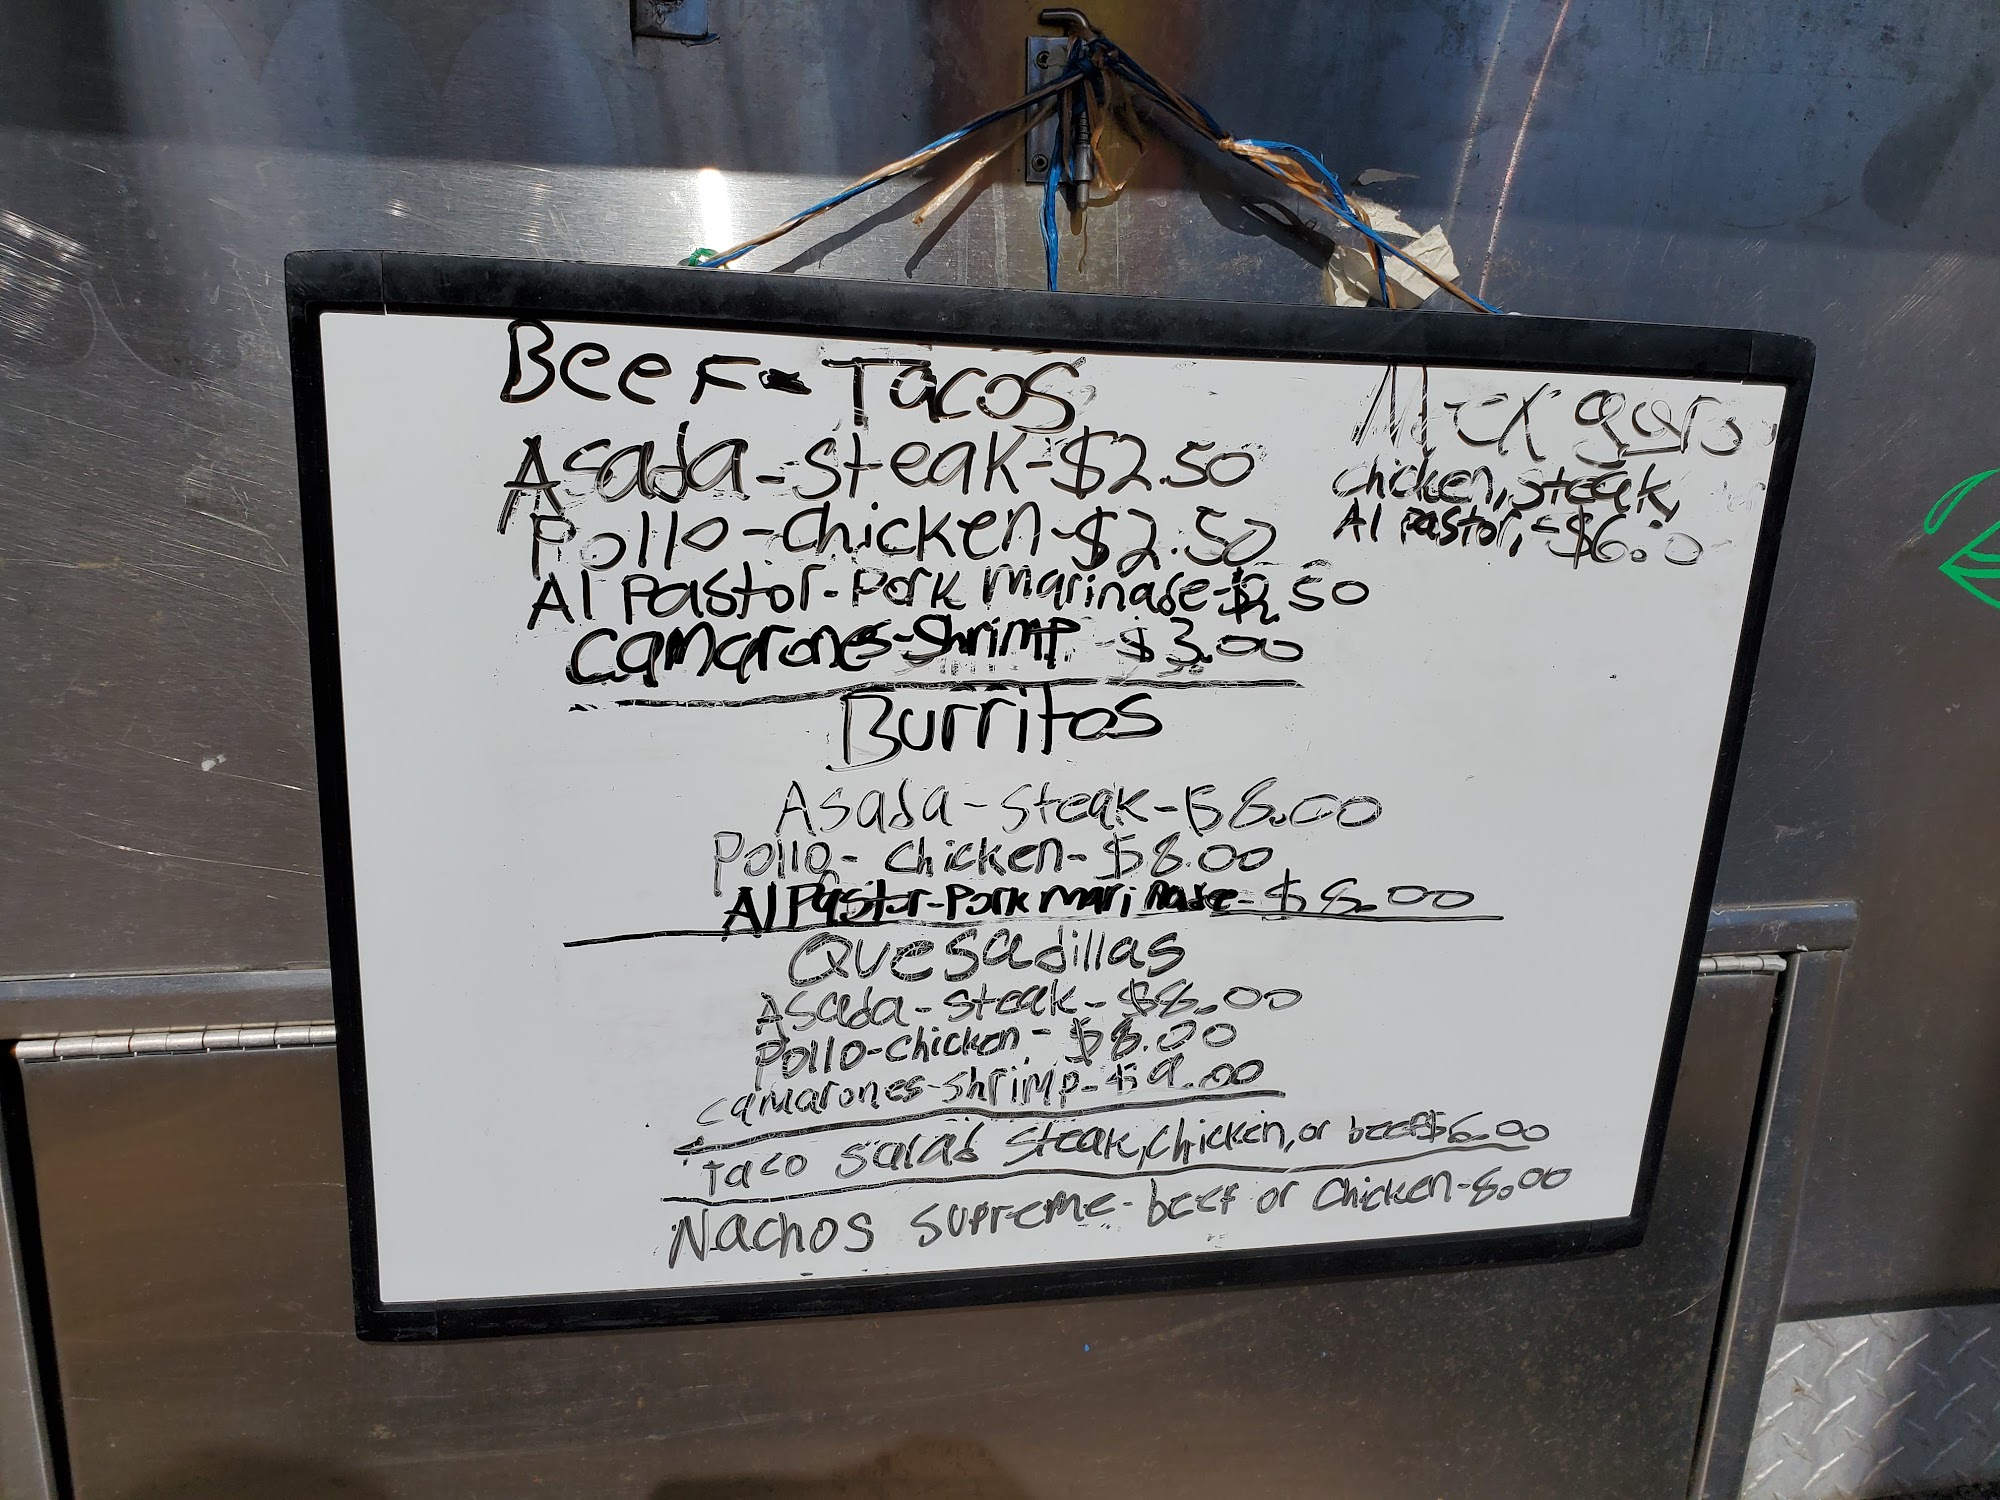 Beef - Tacos
Asada-Steak-$2.50
Pollo-chicken-$2.50
Al Pastor-Pork Marinade-$2.50
Camarones-Shrimp-$3.00
Burritos
Asada-steak-$8.00
Pollo-chicken-$8.00
Al Pastor-Pork marinade-$8.00
Quesadillas
Asada-steak-$8.00
Pollo-chicken-$8.00
camarones-shrimp-$9.00
Taco salad steak, chicken, or beef $6.00
Nachos supreme-beef or chicken-8.00
chicken, steak,
Al Pastor, -$6.0